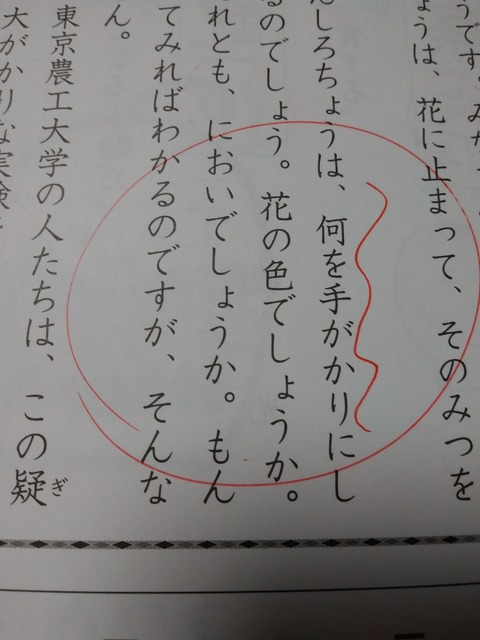 うです。みか
ょうは、花に止まって、そのみつを
んしろちょうは、何を手がかりにし
るのでしょう。花の色でしょうか。
れとも、においでしょうか。もん
てみればわかるのですが、そんな
ん。
東京農工大学の人たちは、この疑
ぎ
大がかりな実験を